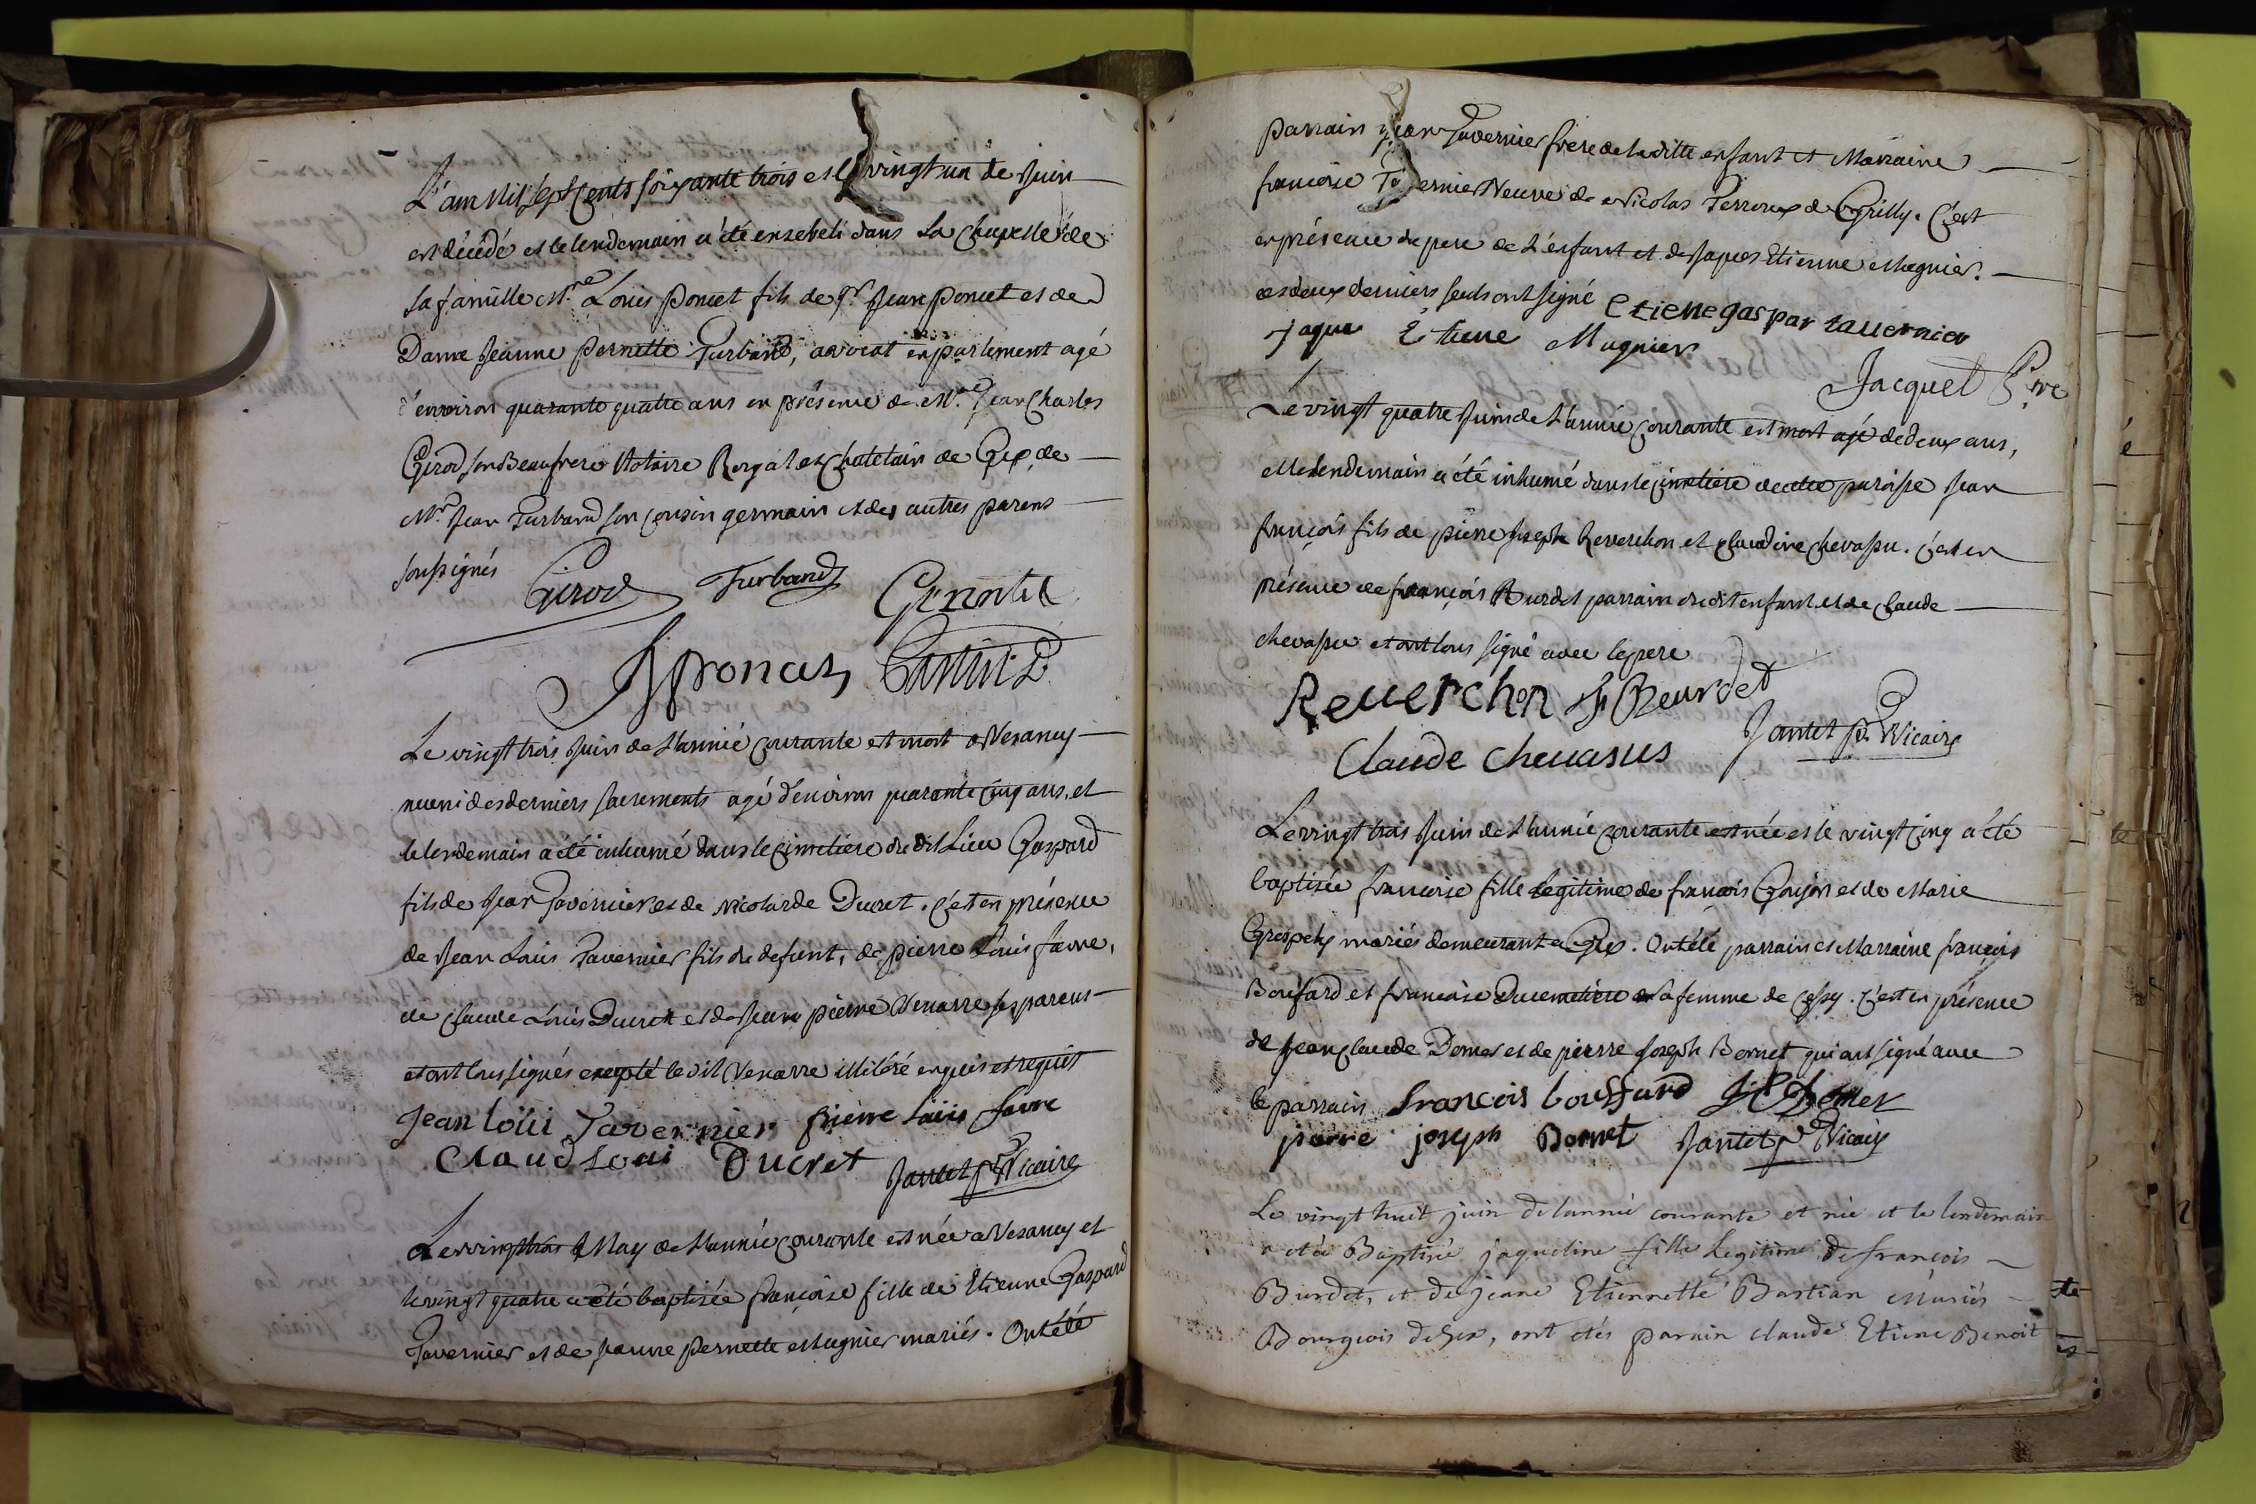 L'an Mil sept cents soixante trois et le vingt un de Juin
est décédé et le lendemain a été enseveli dans la Chapelle de
sa famille Mre Louis Poncet fils de Sr Jean Poncet et de
Dame Jeanne Pernette Turband, avocat en parlement agé
d'environ quarante quatre ans en présence de Mre Jean Charles
Girod son Beaufrere Notaire Royal et Chatelain de Gex, de
Mre Jean Turband son cousin germain et des autres parens
soussignés Girod Turband

Le vingt trois Juin de l'année courante est mort a Vesancy
muni des derniers sacrements agé d'environ quarante cinq ans, et
le lendemain a été inhumé dans le cimetiere du dit Lieu Gaspard
fils de Jean Tavernier et de Nicolarde Ducret. C'est en présence
de Jean Louis Tavernier fils du defunt, de pierre Louis favre,
de Claude Louis Ducret et de Jean pierre Venarre ses parens
et ont tous signés excepté le dit Venarre illitéré enquis et requis
Jean loüi Tavernier pierre loüis favre
Claud Loui Ducret Jantet ptre Vicaire
Le vingt trois May de l'année courante est née a Vesancy et
le vingt quatre a été baptisée françoise fille de Etienne Gaspard
Tavernier et de Jeanne Pernette Mugnier mariés. Ont été
parrain Jean Tavernier frere de la ditte enfant et Marraine
francoise Tavernier Veuve de Nicolas Perroux de Grilly. C'est
en présence du pere de l'enfant et de Jaques Etienne Mugnier.
ces deux derniers seuls ont signé Etiene gaspar tavernier
jaque Etiene Mugnier
Jacquet
Le vingt quatre Juin de l'année courante est mort agé de deux ans,
et le lendemain a été inhumé dans le cimetiere de cette paroisse Jean
françois fils de pierre Joseph Reverchon et Claudine Chevassu. C'est en
présence de françois Burdet parrain du dit enfant et de Claude
chevassu et ont tous signé avec le pere
Reverchon f Beurdet
Claude Chevasus Jantet ptre Vicaire
Le vingt trois Juin de l'année courante est née et le vingt cinq a été
baptisée francoise fille legitime de françois Goujon et de Marie
mariés demeurant a Gex. Ont été parrain et Marraine françois
Boufard et francoise Ducemetiere sa femme de Cessy. C'est en présence
de Jean Claude Domer et de pierre Joseph Bornet qui ont signé avec
le parrain francois bouffard
pierre joseph Bornet Jantet ptre Vicaire
Le vingt huit juin de lannée courante et née et le lendemain
a eté Baptisée jaqueline fille Legitime de françois
Burdet, et de jeane Etiennette Bastian Mariés
Bourgeois de Gex, ont etés parain claude Etiene Benoit